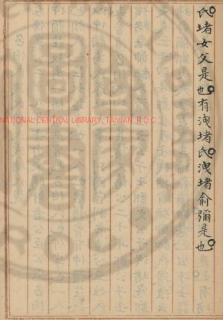 氏堵女父是也有洩堵氏洩堵俞彌是也
NATIONAL CENTRAL LIBRARY, TAIWAN, R.O.C